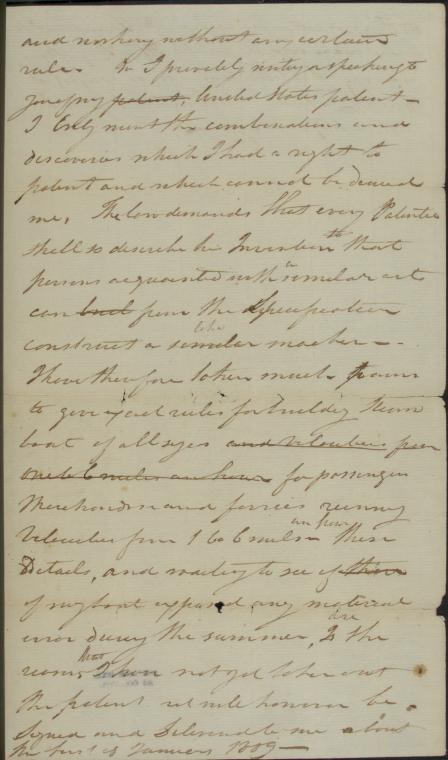 and working without any certain
rule. In privately writing or speaking to
you of my patent, United States patent —
I Only ment the combinations and
discoveries which I had a right to
patent and which cannot be denied
me. The law demands that every Patentee
shall so describe his Invention to that
persons acquainted with a similar art
can but from the Specification
construct a similar like machine —.
I have therefore taken much
to give exact rules for building Steam
boat of all sizes and velocities from
one to 6 miles an hour for passengers
Merchandise and ferries running
Velocities from 1 to 6 miles an hour These
Details, and waiting to see if there
if my boat exposed any material
error during the summer, are Is the
reasons that I have not yet taken out
the patent it will however be
signed and Delivered to me about
the first of January 1809 —